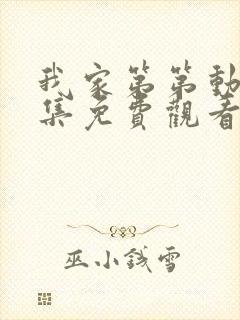 我家第第動
集免費觀看
巫小錢雪